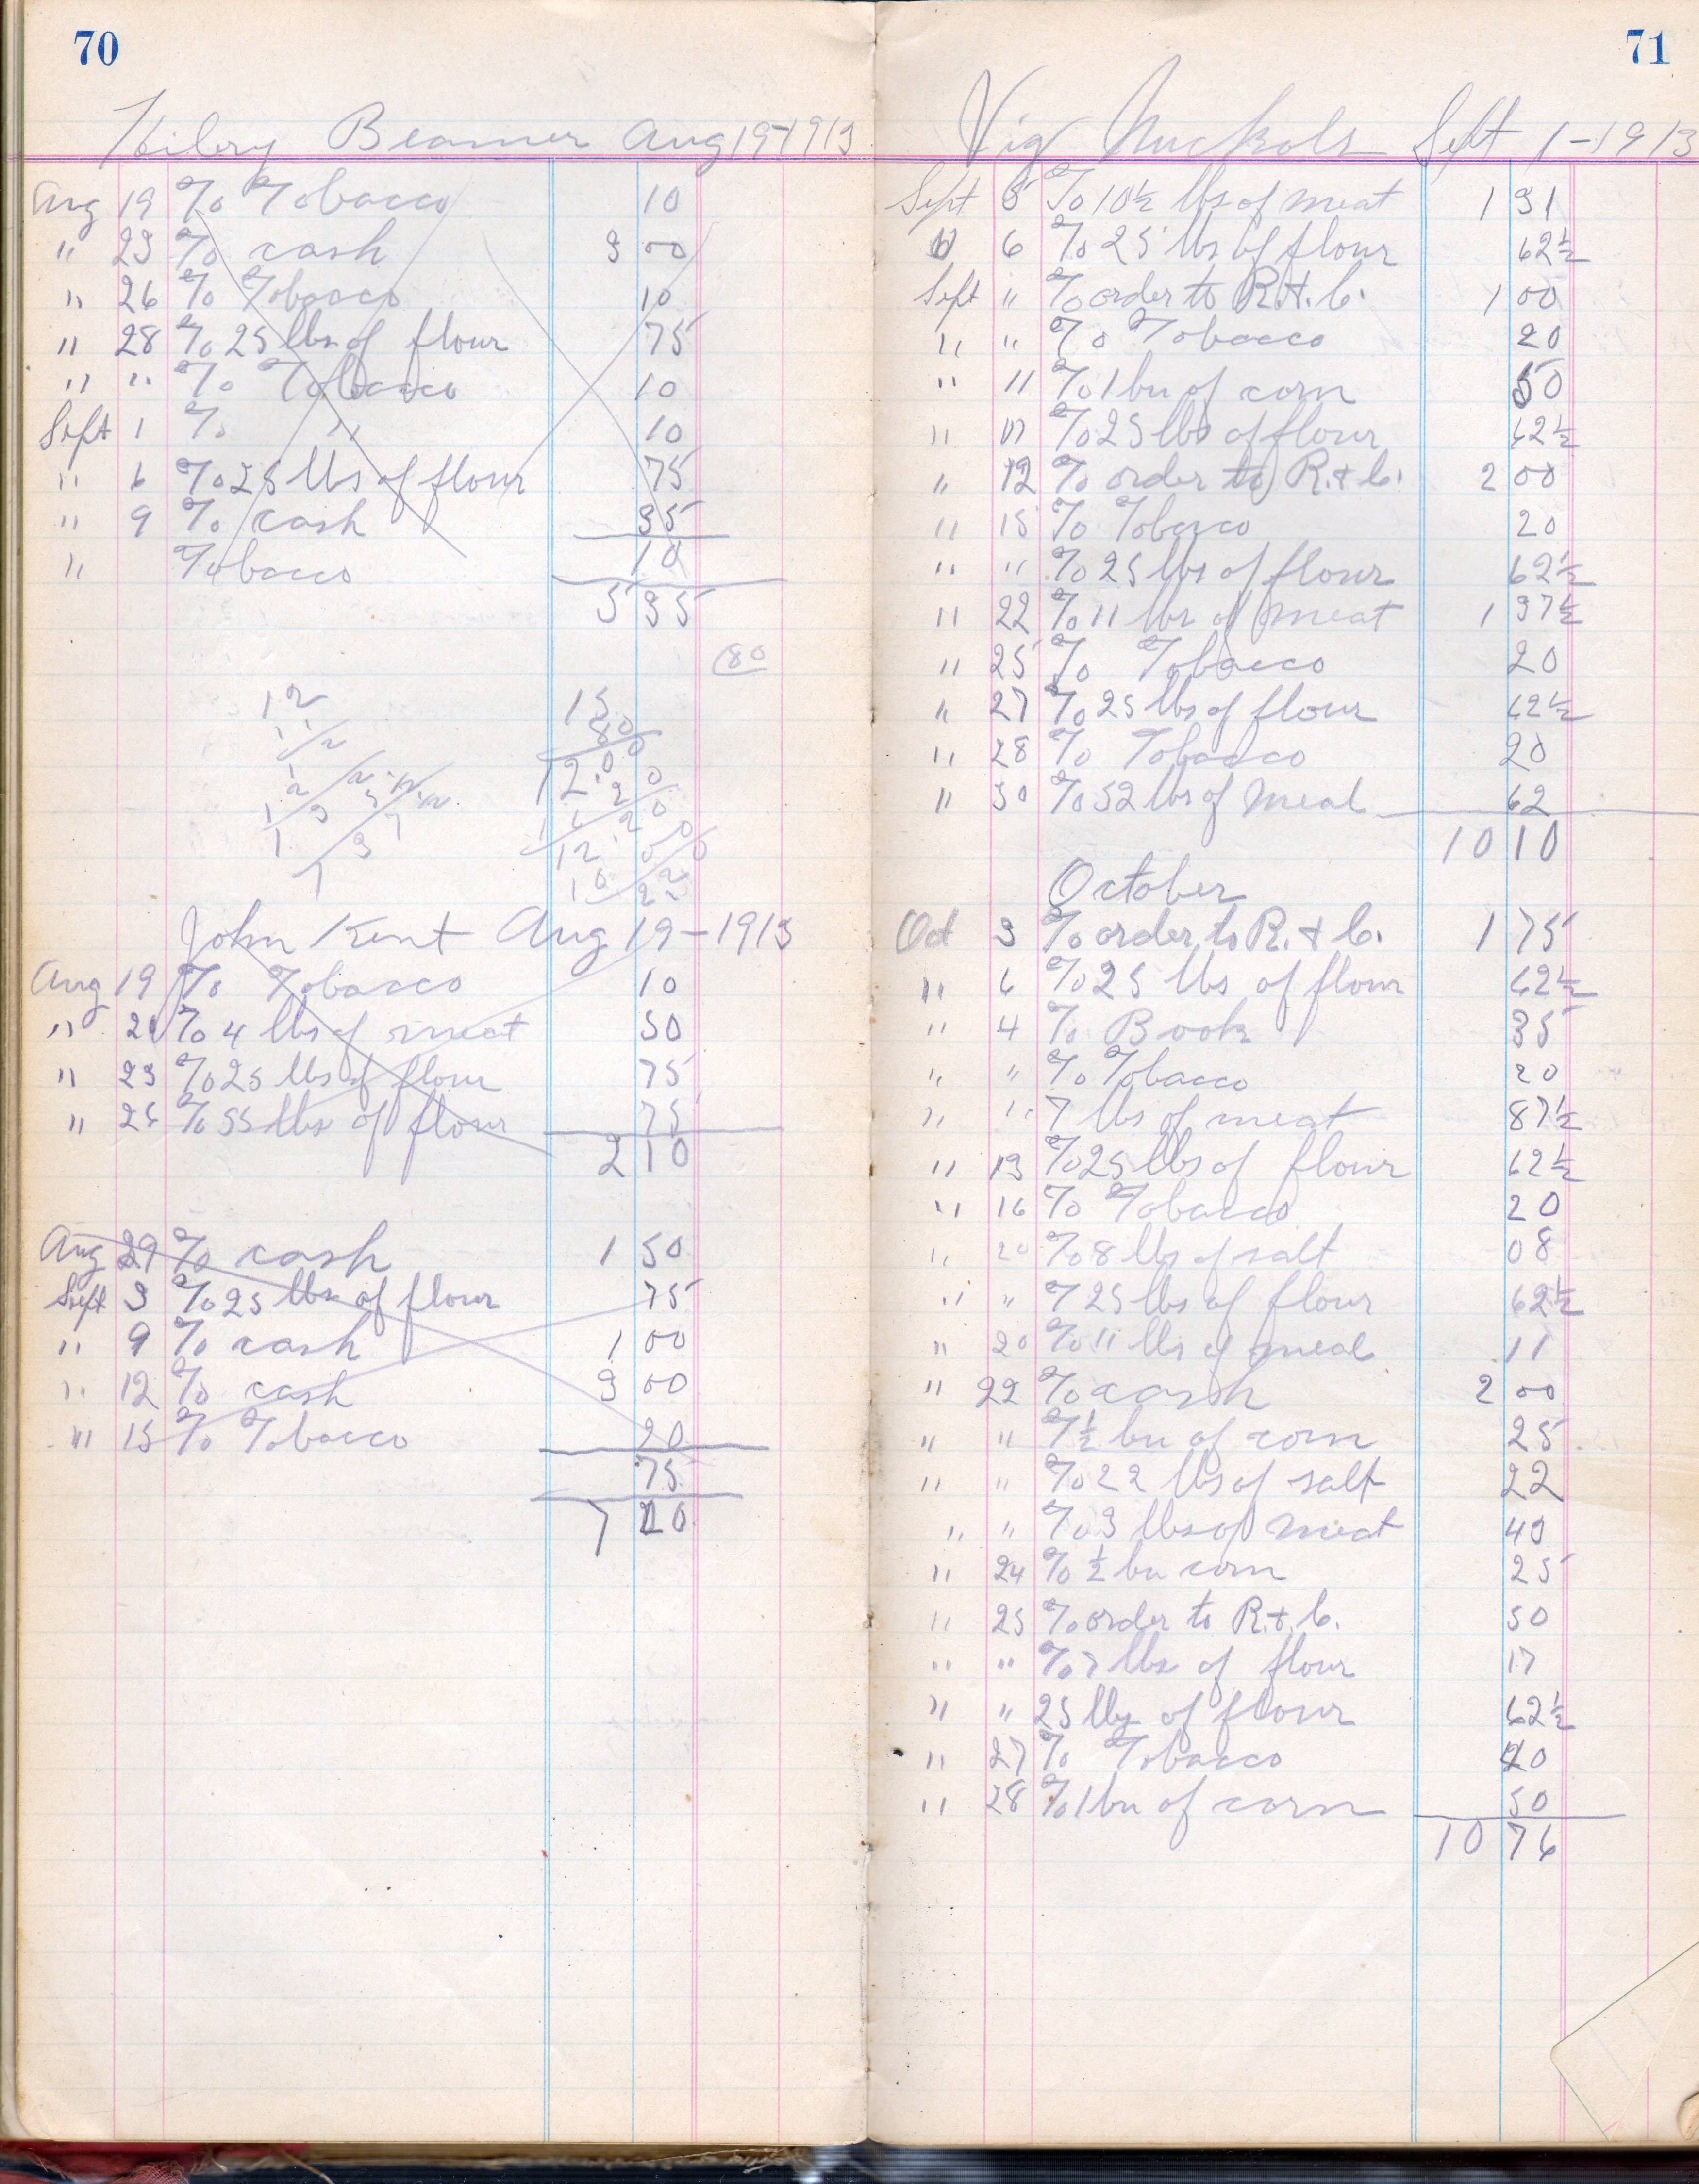 70
Hilery Beamer Aug 19-1913
Aug 19 To Tobacco 10
" 23 To cash 3 00
" 26 To Tobacco 10
" 28 To 25 lbs of flour 75
" " To Tobacco 10
Sept 1 To " 10
" 6 To 25 lbs of flour 75
" 9 To cash 35
" Tobacco 10
5 35
80
John Kent Aug 19-1913
Aug 19 To Tobacco 10
" To 4 lbs of meat 50
" 23 To 25 lbs of flour 75
" To lbs of flour 75
2 10
Aug 29 To cash 1 50
Sept 3 To 25 lbs of flour 75
" 9 To cash 1 00
" 12 To cash 3 00
" 15 To Tobacco 20
75
7 20
71
Vig Nuckols Sept 1-1913
Sept 5 To 10½ lbs of meat 1 31
6 To 25 lbs of flour 62½
Sept " To order to R. & C. 1 00
" " To Tobacco 20
" 11 To 1 bu of corn 50
" To 25 lbs of flour 62½
" 12 To order to R. & C. 2 00
" 15 To Tobacco 20
" " To 25 lbs of flour 62½
" 22 To 11 lbs of meat 1 37½
" 25 To Tobacco 20
" 27 To 25 lbs of flour 62½
" 28 To Tobacco 20
" 30 To 52 lbs of meal 62
10 10
October
Oct 3 To order to R. & C. 1 75
" 6 To 25 lbs of flour 62½
" 4 To Book 35
" " To Tobacco 20
" " 7 lbs of meat 87½
" 13 To 25 lbs of flour 62½
" 16 To Tobacco 20
" 20 To 8 lbs of salt 08
" " T 25 lbs of flour 62½
" 20 To 11 lbs of meal 11
" 22 To cash 2 00
" " T ½ bu of corn 25
" " To 22 lbs of salt 22
" " To 3 lbs of meat 43
" 24 To ½ bu corn 25
" 25 To order to R. & C. 50
" " To 7 lbs of flour 17
" " 25 lbs of flour 62½
" 27 To Tobacco 20
" 28 To 1 bu of corn 50
10 76